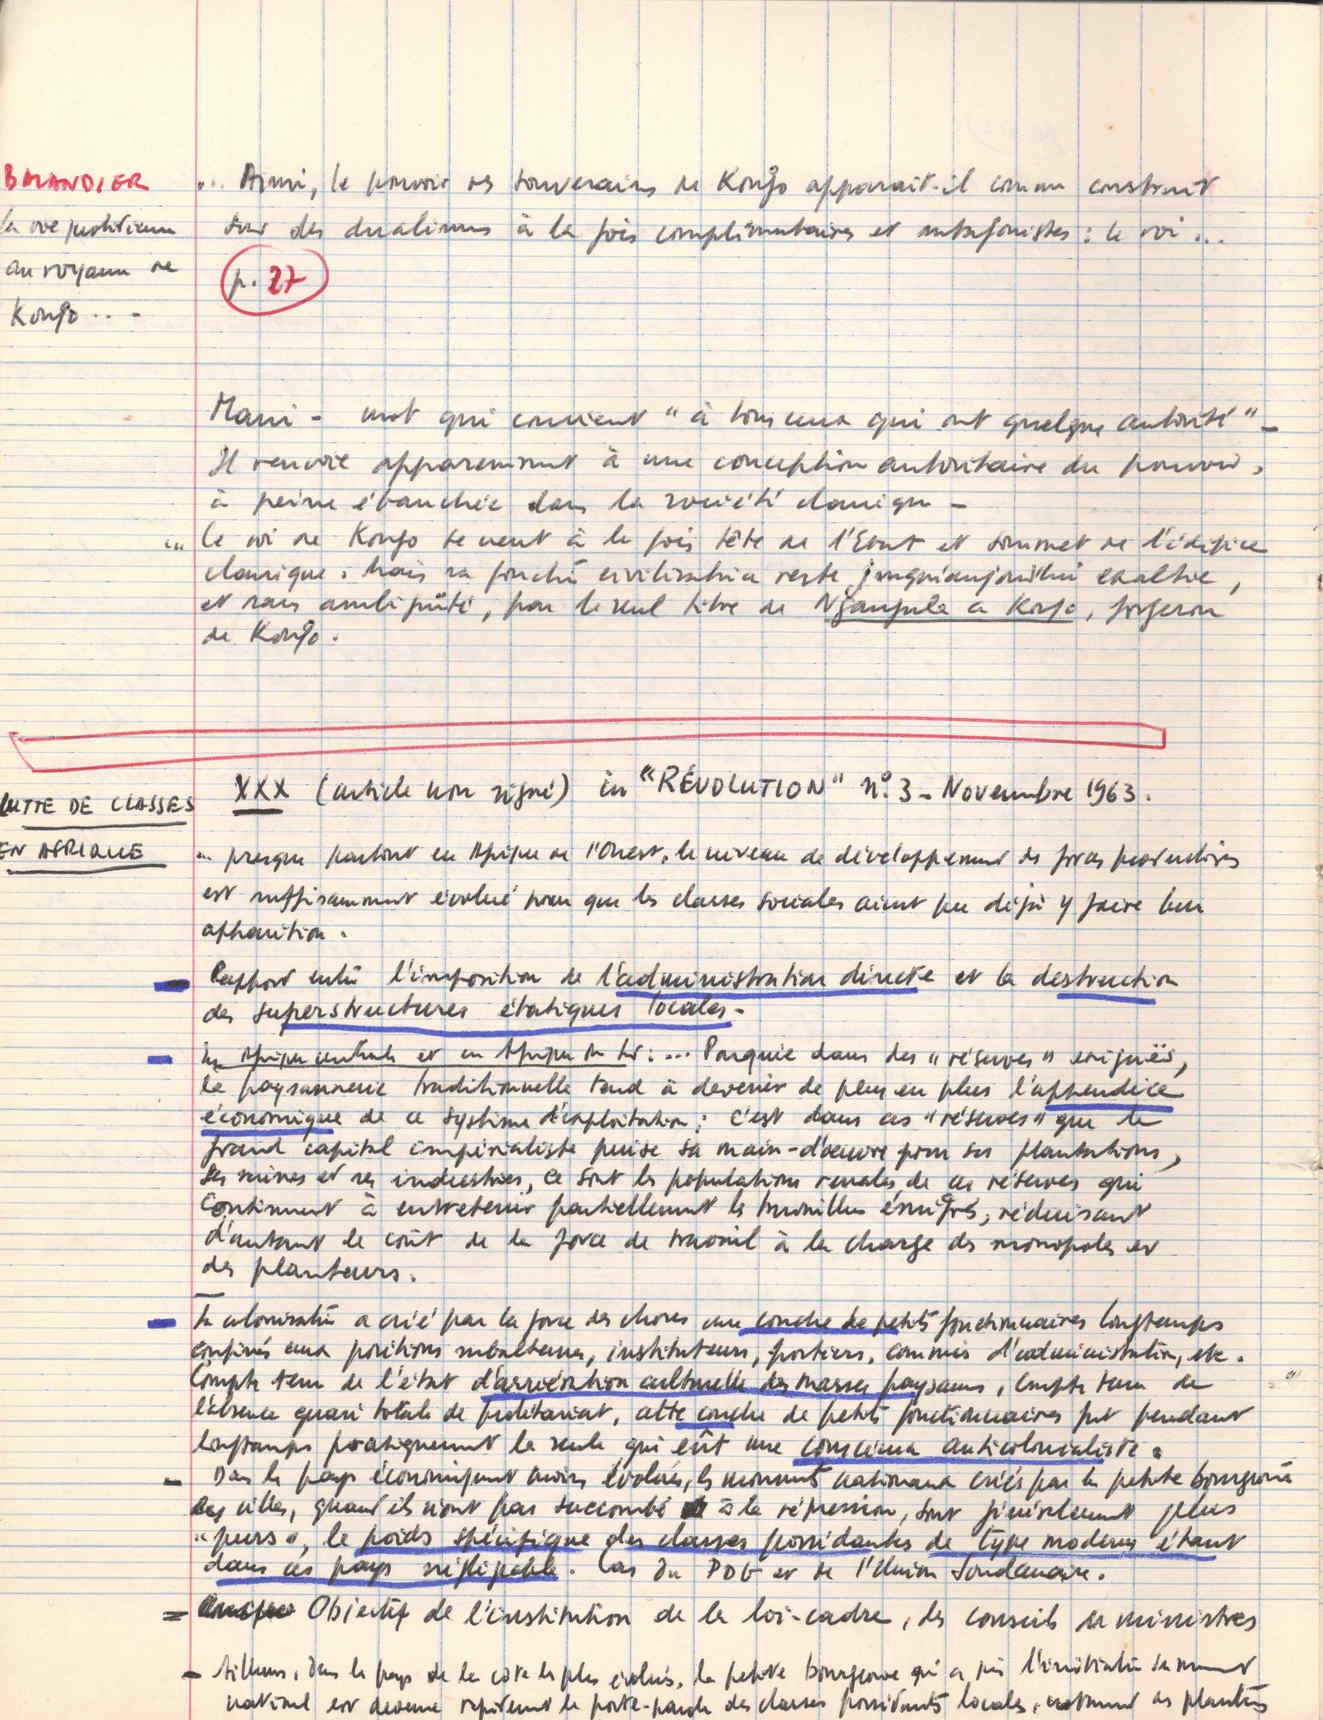 BALANDIER
la vie quotidienne
au royaume de
Kongo ...
... Ainsi, le pouvoir des souverains de Kongo apparait-il comme construit
sur des dualismes à la fois complémentaires et antagonistes : le roi ...
p. 27
Mani - mot qui convient "à tous ceux qui ont quelque autorité" -
Il renvoie apparemment à une conception autoritaire du pouvoir,
à peine ébauchée dans la société clanique -
... Le roi de Kongo se veut à la fois tête de l'Etat et sommet de l'édifice
clanique. Mais sa fonction civilisatrice reste jusqu'aujourd'hui exaltée,
et sans ambiguïté, par le seul titre de Ngangula a Kongo, forgeron
de Kongo.
LUTTE DE CLASSES
EN AFRIQUE
XXX (article non signé) in "RÉVOLUTION" n° 3 - Novembre 1963.
... presque partout en Afrique de l'Ouest, le niveau de développement des forces productives
est suffisamment évolué pour que les classes sociales aient pu déjà y faire leur
apparition.
- Rapport entre l'imposition de l'administration directe et la destruction
des superstructures étatiques locales -
- En Afrique centrale et en Afrique du Sud : ... Parquée dans des "réserves" exiguës,
la paysannerie traditionnelle tend à devenir de plus en plus l'appendice
économique de ce système d'exploitation ; c'est dans ces "réserves" que le
grand capital impérialiste puise sa main-d'oeuvre pour ses plantations,
ses mines et ses industries, ce sont les populations rurales de ces réserves qui
continuent à entretenir partiellement les travailleurs émigrés, réduisant
d'autant le coût de la force de travail à la charge des monopoles et
des planteurs.
- La colonisation a créé par la force des choses une couche de petits fonctionnaires longtemps
confinés aux positions subalternes, instituteurs, postiers, commis d'administration, etc.
Compte tenu de l'état d'arriération culturelle des masses paysannes, compte tenu de
l'absence quasi totale de prolétariat, cette couche de petits fonctionnaires fut pendant
longtemps pratiquement la seule qui eût une conscience anticolonialiste.
- Dans les pays économiquement moins évolués, les mouvements nationaux créés par la petite bourgeoisie
des villes, quand ils n'ont pas succombé à la répression, sont généralement plus
"purs", le poids spécifique des classes possédantes de type moderne étant
dans ces pays négligeable. Cas du PDG et de l'Union Soudanaise.
= Objectif de l'institution de la loi-cadre, des conseils de ministres
- Ailleurs, dans les pays de la côte les plus évolués, la petite bourgeoisie qui a pris l'initiative du mouvement
national est devenue rapidement le porte-parole des classes possédantes locales, notamment des planteurs